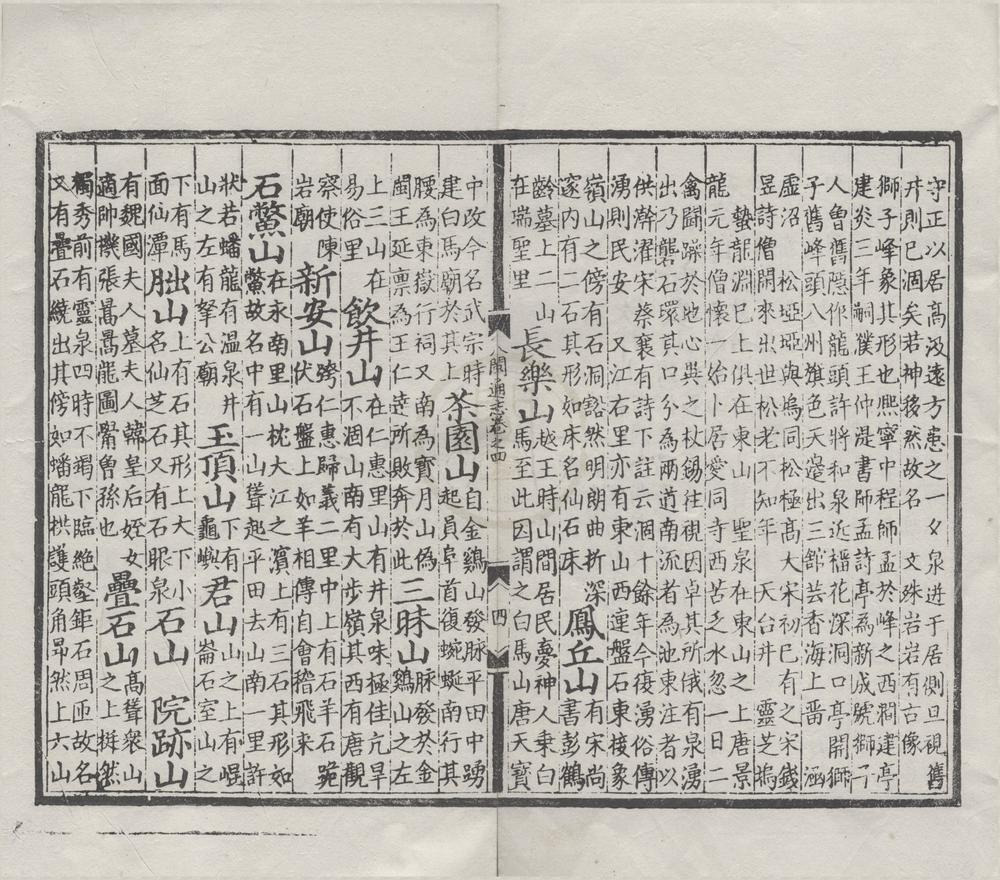 守正以居高汲遠方患之一夕泉迸于居側旦視舊
井則已涸矣若神移然故名　文殊岩岩有古像
獅子峰象其形也熙寧中程師孟於峰之西澗建亭
建炎三年嗣濮王仲湜書師孟詩亭為新成號獅子
人魯舊隱作龍頭許將和泉近榴花深洞口亭開獅
子舊峰頭八州旗色天邊出三舘芸香海上畱　涵
虛沼　松埡埡與塢同松極高大宋初已有之宋錢
昱詩僧開來出世松老不知年　天台井　靈芝塢
蟄龍淵巳上俱在東山　聖泉在東山之上唐景
龍元年僧懷一始卜居愛同寺西苦乏水忽一日二
禽鬭躁於地心異之杖錫往視因卓其所俄有泉湧
出乃礱石環其口分為兩道南流者為池東注者以
供澣濯宋蔡襄有詩下註云涸十餘年今復湧俗傳
湧則民安　又江右里亦有東山西連盤石東接象
嶺山之傍有石洞豁然明朗曲折深
邃内有二石其形如床名仙石床
鳳丘山
有宋尚
書彭鶴
齡墓上二山
在瑞聖里
長樂山
越王時山間居民夢神人乘白
馬至此因謂之白馬山唐天寶
閩通志卷之四
四
中改今名武宗時
建白馬廟於其上
茶園山
自金鷄山發脉平田中踴
起員阜首復蜿蜒南行其
腰為東嶽行祠又南為寶月山偽
閩王延禀為王仁達所敗奔於此
三昧山
山脉發於金
鷄山之左
上三山在
易俗里
飲井山
在仁惠里山有井泉味極佳亢旱
不涸山南有大步嶺其西有唐觀
察使陳
岩廟
新安山
跨仁惠歸義二里中上有石羊石跪
伏石盤上如羊相傳自會稽飛来
石鱉山
在永南里山枕大江之濱上有三石其形如
鱉故名中有一山聳起平田去山南一里許
狀若蟠龍有温泉井
山之左有拏公廟
玉頂山
下有
龜嶼
君山
山之上有崐
崙石室山之
下有馬
面仙潭
朏山
上有石其形上大下小
名仙芝石又有石眼泉
石山
院跡山
有魏國夫人墓夫人韓皇后姪女
適帥機張暠暠龍圖閣魯孫也
疊石山
高聳衆山
之上挺然
獨秀前有靈泉四時不竭下臨絶壑鉅石周匝故名
又有疊石繞出其傍如蟠龍拱護頭角昂然上六山